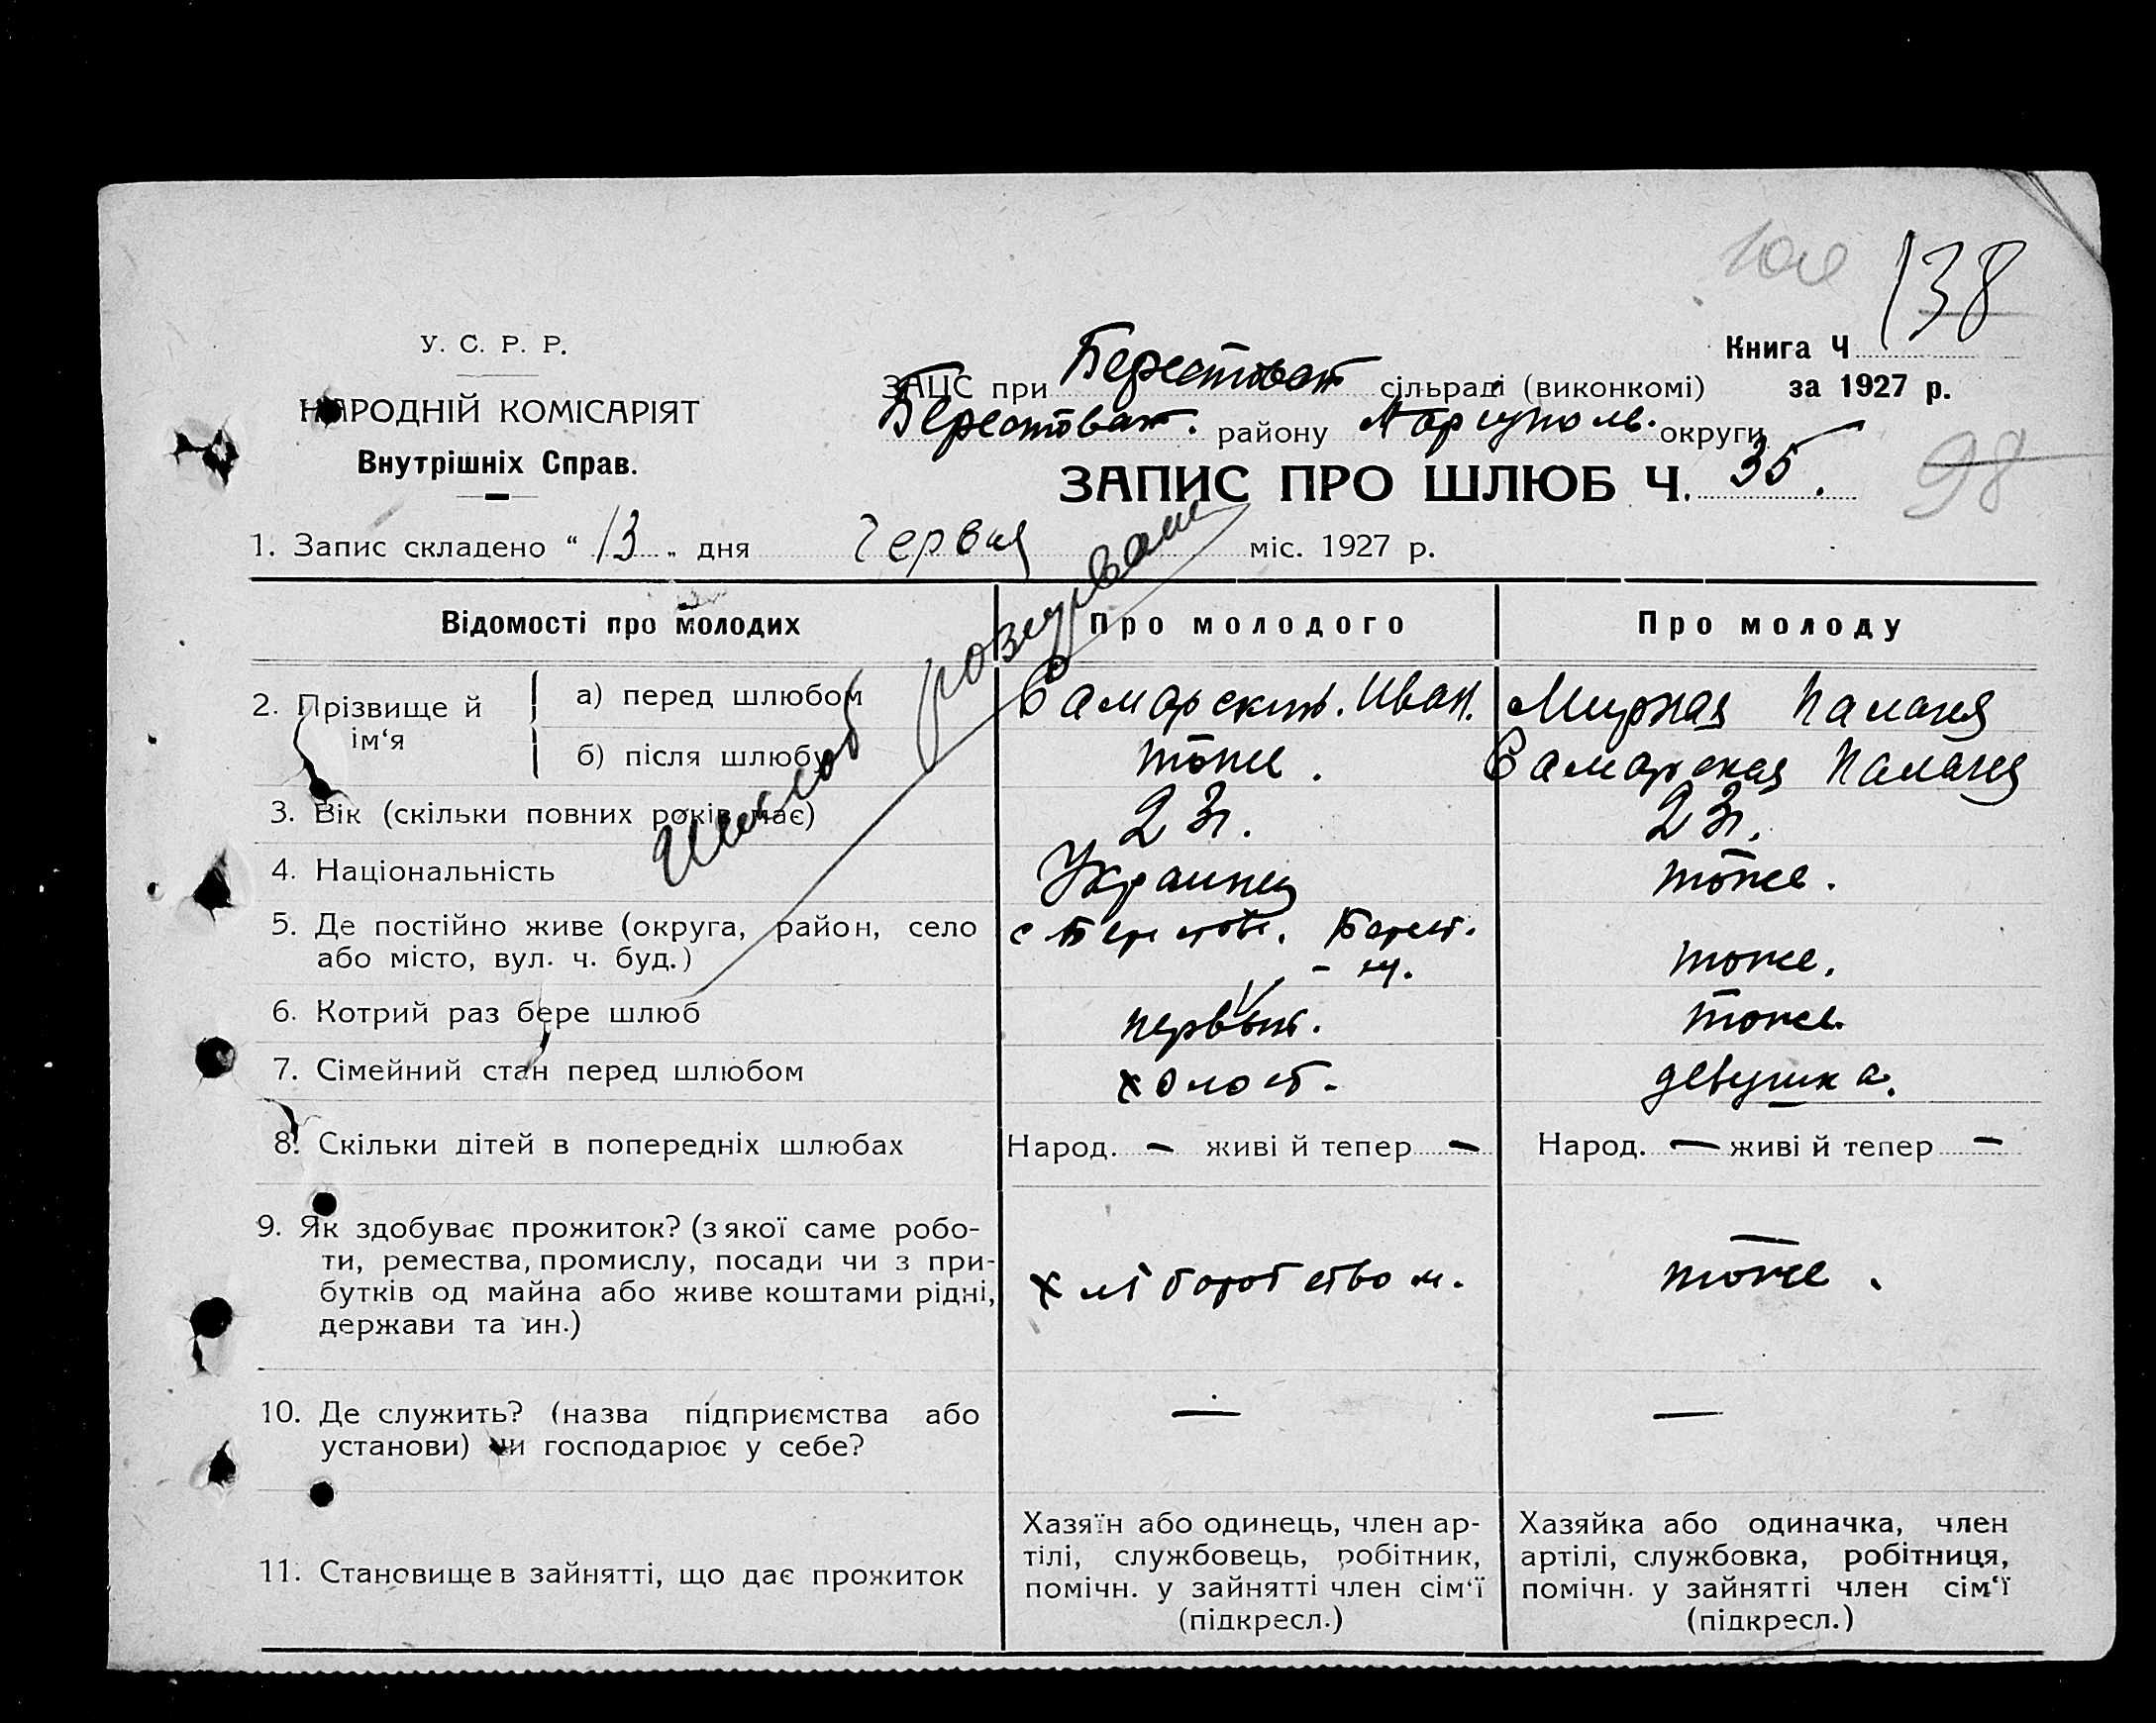 138
У. С. Р. Р.
Книга Ч
ЗАЦС при Берестоват сільраді (виконкомі) за 1927 р.
НАРОДНІЙ КОМІСАРІЯТ
Берестоват. району Мариуполь. округи
Внутрішніх Справ.
ЗАПИС ПРО ШЛЮБ Ч. 35.
98
1. Запис складено “ 13 „ дня Червня міс. 1927 р.
Шлюб розірвано
Відомості про молодих Про молодого Про молоду
2. Прізвище й ім‘я
а) перед шлюбом Самарский. Иван. Мирная Палагея
б) після шлюбу тоже. Самарская Палагея
3. Вік (скільки повних років має) 23г. 23г.
4. Національність Украинец тоже.
5. Де постійно живе (округа, район, село с Берестов. Берест.
або місто, вул. ч. буд.) тоже.
6. Котрий раз бере шлюб первый. тоже.
7. Сімейний стан перед шлюбом холост. девушка.
8. Скільки дітей в попередніх шлюбах Народ. — живі й тепер — Народ. — живі й тепер —
9. Як здобуває прожиток? (з якої саме робо-
ти, ремества, промислу, посади чи з при-
бутків од майна або живе коштами рідні, хлеборобством. тоже.
держави та ин.)
10. Де служить? (назва підприємства або — —
установи) чи господарює у себе?
11. Становище в зайнятті, що дає прожиток
Хазяїн або одинець, член ар-
тілі, службовець, робітник,
помічн. у зайнятті член сім‘ї
(підкресл.)
Хазяйка або одиначка, член
артілі, службовка, робітниця,
помічн. у зайнятті член сім‘ї
(підкресл.)